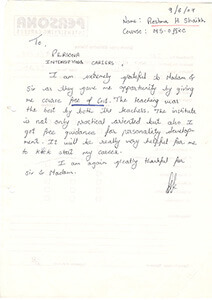 9/6/04
Name: Reshma H Shaikh
Course: MS-Office
To,
PERSONA
INTERNATIONAL CAREERS.
I am extremely grateful to Madam &
Sir as they gave me opportunity by giving
me course free of Cost. The teaching was
the best by both the teachers. The institute
is not only practical oriented but also I
got free guidance for personality develop-
ment. It will be really very helpful for me
to kick start my career.
I am again greatly thankful for
Sir & Madam.